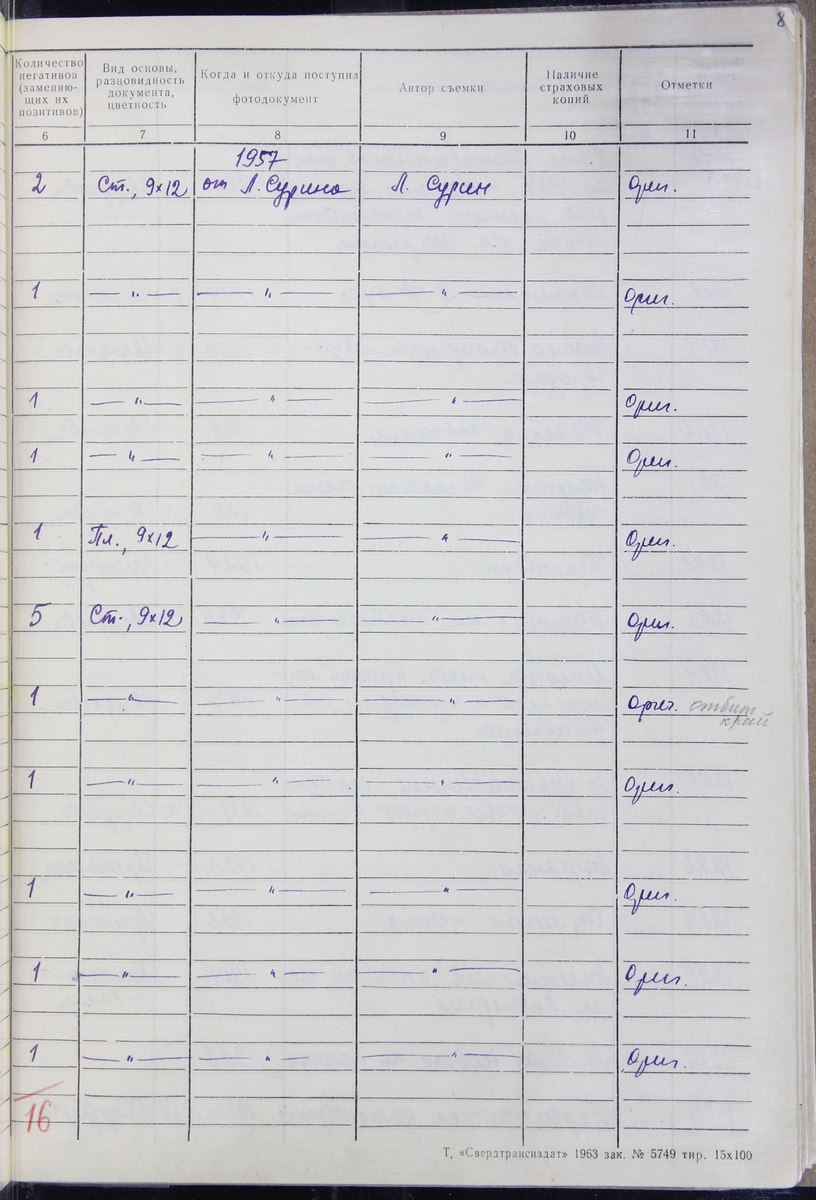 8
Количество негативов (заменяющих их позитивов)
Вид основы, разновидность документа, цветность
Когда и откуда поступил фотодокумент
Автор съемки
Наличие страховых копий
Отметки
6 7 8 9 10 11
1957
2 Ст., 9×12 от Л. Сурина Л. Сурин Ориг.
1 — " — — " — — " — Ориг.
1 — " — — " — — " — Ориг.
1 — " — — " — — " — Ориг.
1 Пл., 9×12 — " — — " — Ориг.
5 Ст., 9×12 — " — — " — Ориг.
1 — " — — " — — " — Ориг. отбит
край
1 — " — — " — — " — Ориг.
1 — " — — " — — " — Ориг.
1 — " — — " — — " — Ориг.
1 — " — — " — — " — Ориг.
16
Т, «Свердтрансиздат» 1963 зак. № 5749 тир. 15х100